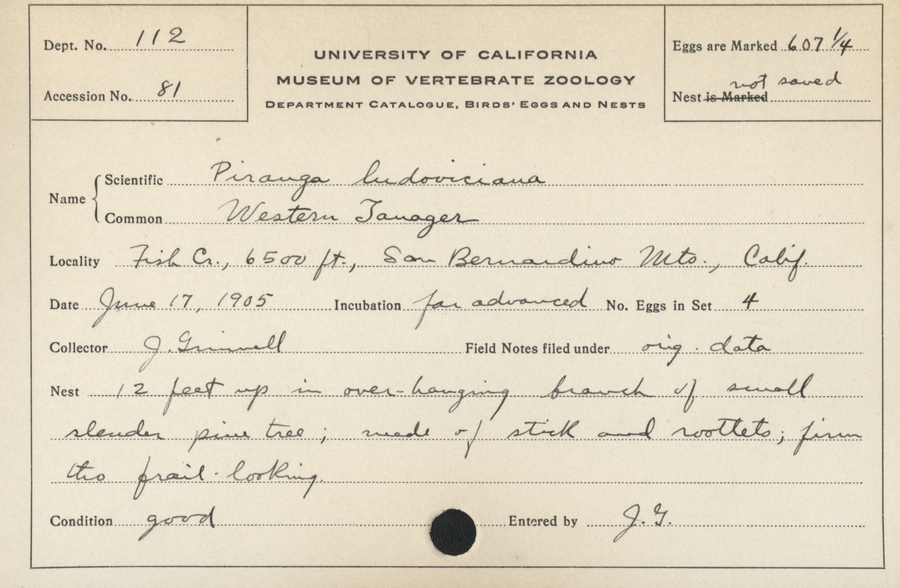 Dept. No. 112
Accession No. 81
UNIVERSITY OF CALIFORNIA
MUSEUM OF VERTEBRATE ZOOLOGY
DEPARTMENT CATALOGUE, BIRDS' EGGS AND NESTS
Eggs are Marked 607 1/4
not saved
Nest is Marked
Name
Scientific Piranga ludoviciana
Common Western Tanager
Locality Fish Cr., 6500 ft., San Bernardino Mts., Calif.
Date June 17, 1905 Incubation far advanced No. Eggs in Set 4
Collector J. Grinnell Field Notes filed under orig. data
Nest 12 feet up in over-hanging branch of small
slender pine tree; made of stick and rootlets; firm
tho frail-looking.
Condition good Entered by J.G.